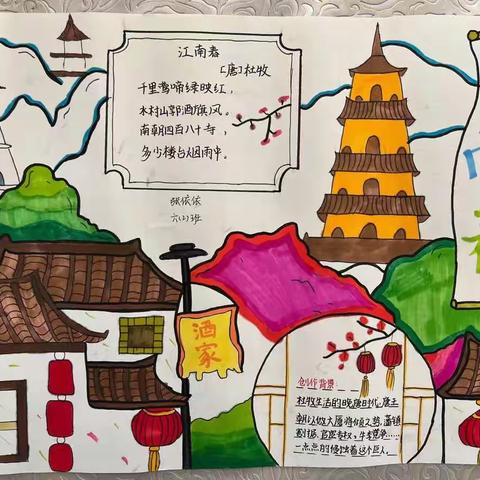 江南春
[唐]杜牧
千里莺啼绿映红，
水村山郭酒旗风。
南朝四百八十寺，
多少楼台烟雨中。
张依依
六(2)班
酒家
创作背景:
杜牧生活的晚唐时代,唐王
朝以做大厦将倾之势,藩镇
割据、宦官专权、牛李党争……
一点点的侵蚀着这个巨人。